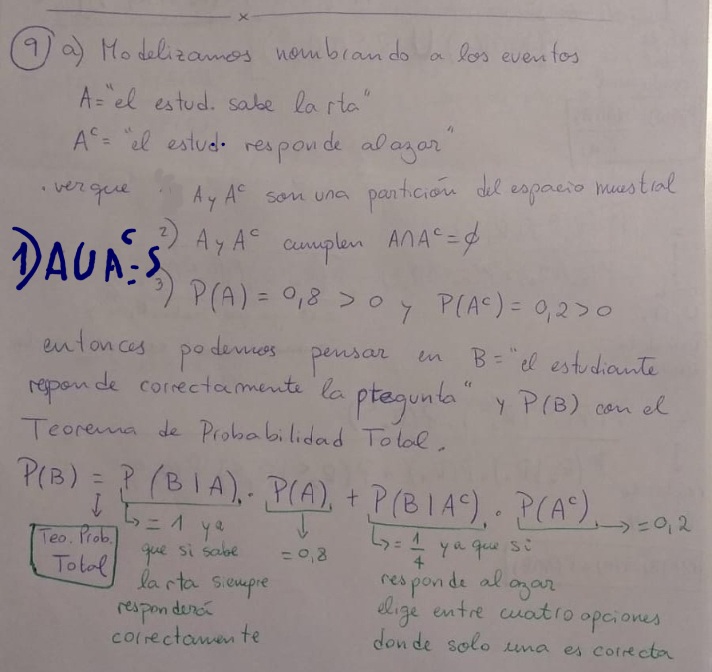 9) a) Modelizamos nombrando a los eventos
A = "el estud. sabe la rta"
Aᶜ = "el estud. responde al azar"
. ver que . A y Aᶜ son una partición del espacio muestral
1) A ∪ Aᶜ = S
2) A y Aᶜ cumplen A ∩ Aᶜ = ∅
3) P(A) = 0,8 > 0 y P(Aᶜ) = 0,2 > 0
entonces podemos pensar en B = "el estudiante
responde correctamente la pregunta" y P(B) con el
Teorema de Probabilidad Total.
P(B) = P(B|A) . P(A) + P(B|Aᶜ) . P(Aᶜ)
↓
Teo. Prob.
Total
↳ = 1 ya
que si sabe
la rta siempre
responderá
correctamente
↓
= 0,8
↳ = 1/4 ya que, si
responde al azar
elige entre cuatro opciones
donde solo una es correcta
→ = 0,2